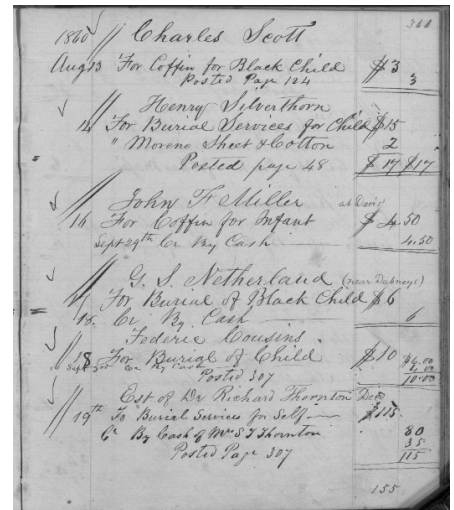 361
1860 Charles Scott
Aug 13 For Coffin for Black Child $3 3
Posted Page 124
Henry Silverthorn
14 For Burial Services for Child $15
" Moreno Sheet & Cotton 2
Posted page 48 $17 $17
John F Miller
16 For Coffin for Infant $4.50
Sept 29th Cr By Cash 4.50
G. S. Netherland (near Dabneys)
17 For Burial of Black Child $6
18. Cr By Cash 6
Federic Cousins
18 For Burial of Child $10 $6.00
Sept 3rd Cr By Cash 4.00
Posted 307 10.00
Est of Dr Richard Thornton Decd
19th To Burial Services for Self $115.
Cr By Cash of Mrs S T Thornton 80
35
Posted Page 307 115
155